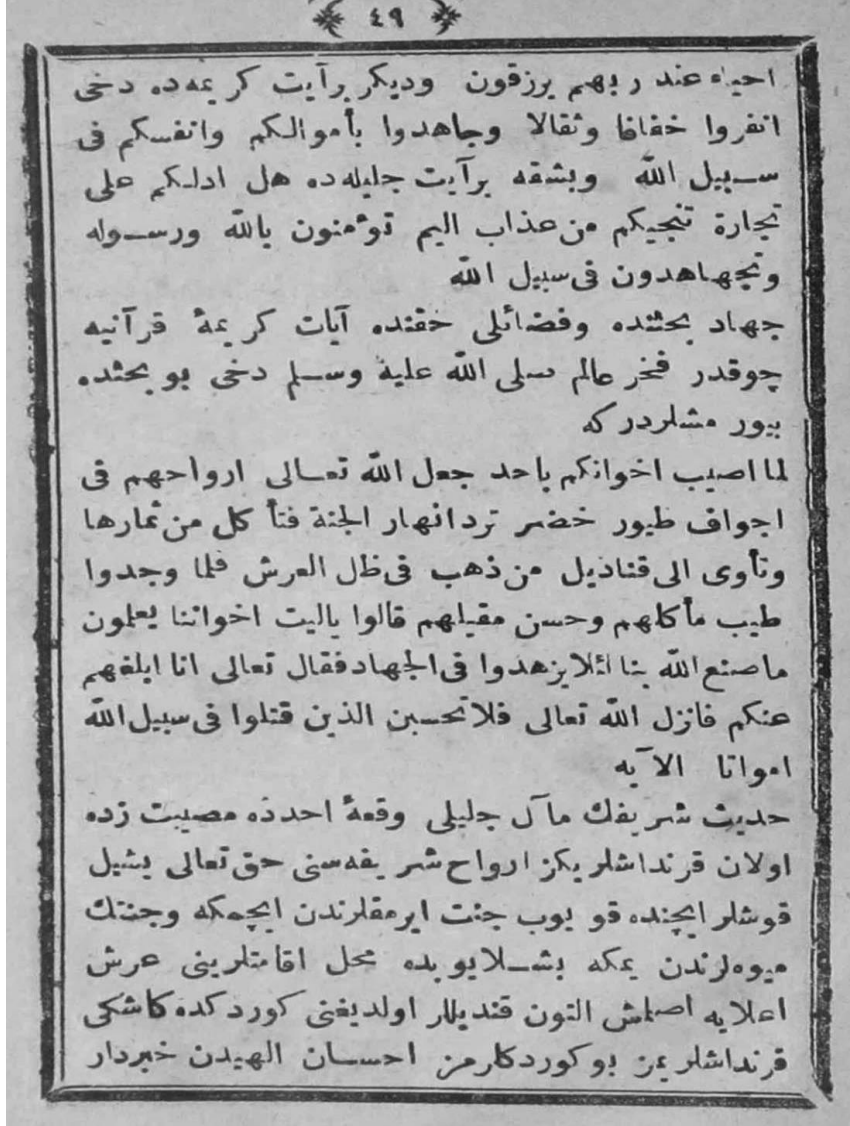 ٤٩
احياء عند ربهم يرزقون وديكر برآيت كريمه‌ده دخى
انفروا خفافا وثقالا وجاهدوا بأموالكم وانفسكم فى
سبيل الله وبشقه برآيت جليله‌ده هل ادلكم على
تجارة تنجيكم من عذاب اليم تؤمنون بالله ورسوله
وتجهاهدون فى سبيل الله
جهاد بحثنده وفضائلى حقنده آيات كريمهٔ قرآنيه
چوقدر فخر عالم صلى الله عليه وسلم دخى بو بحثده
بيورمشلردركه
لما اصيب اخوانكم باحد جعل الله تعالى ارواحهم فى
اجواف طيور خضر ترد انهار الجنة فتأكل من ثمارها
وتأوى الى قناديل من ذهب فى ظل العرش فلما وجدوا
طيب مأكلهم وحسن مقيلهم قالوا ياليت اخواننا يعلمون
ماصنع الله بنا لئلا يزهدوا فى الجهاد فقال تعالى انا ابلغهم
عنكم فانزل الله تعالى فلا تحسبن الذين قتلوا فى سبيل الله
امواتا الآيه
حديث شريفك مآل جليلى وقعهٔ احدده مصيبت زده
اولان قرنداشلريكز ارواح شريفه‌سنى حق تعالى يشيل
قوشلر ايچنده قويوب جنت ايرمقلرندن ايچمكه وجنتك
ميوه‌لرندن يمكه بشلايوبده محل اقامتلرينى عرش
اعلايه اصلمش التون قنديللر اولديغنى كوردكده كاشكى
قرنداشلريمز بو كوردكلرمز احسان الهيدن خبردار